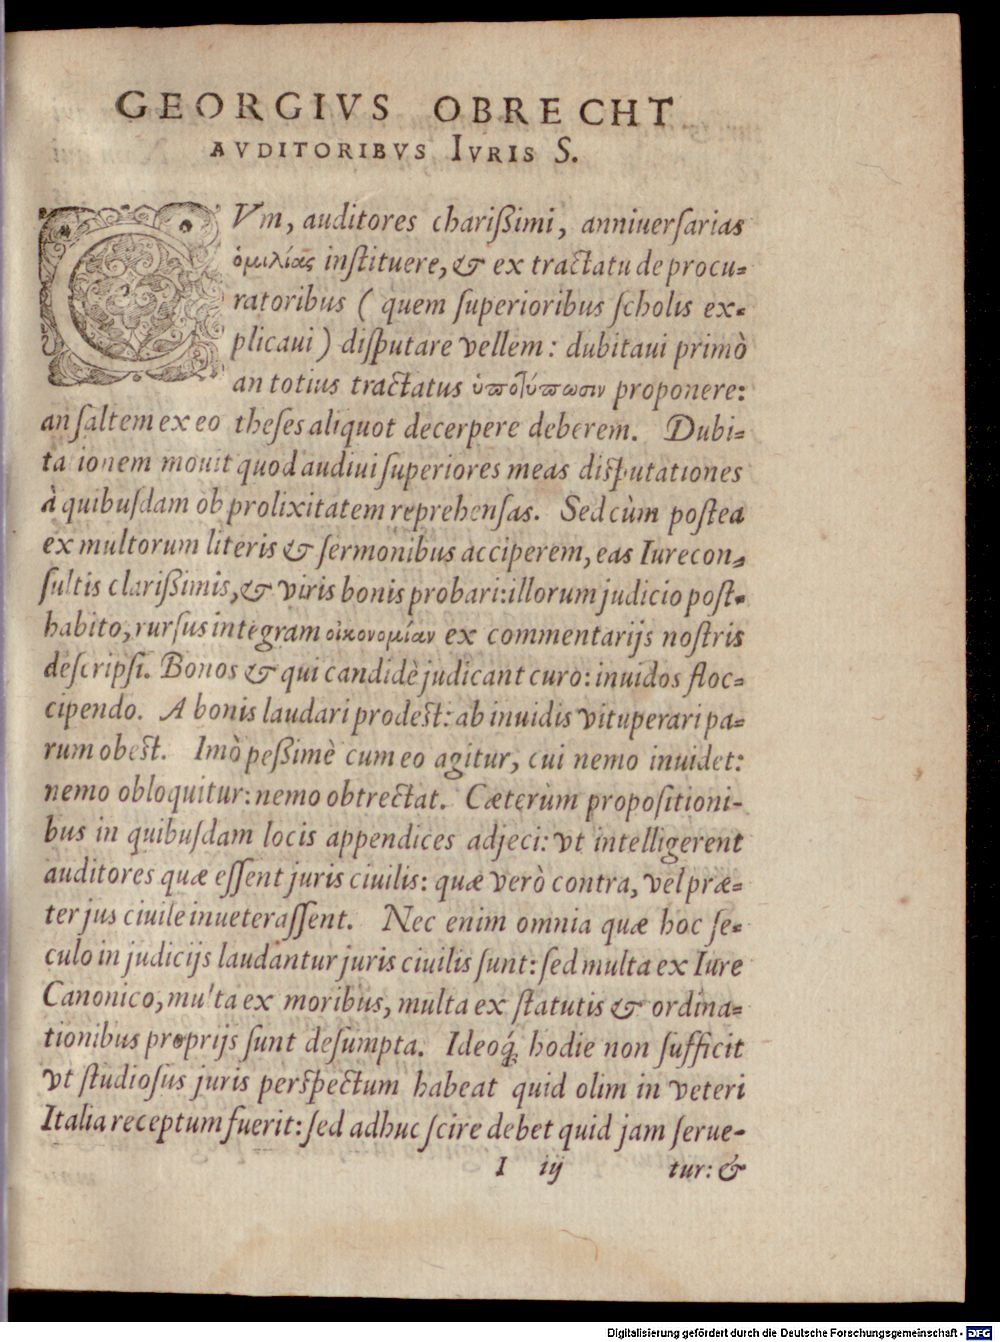 GEORGIVS OBRECHT
AVDITORIBVS IVRIS S.
CVm, auditores charißimi, anniuerſarias
ὁμιλίας inſtituere, & ex tractatu de procu=
ratoribus ( quem ſuperioribus ſcholis ex=
plicaui ) diſputare vellem: dubitaui primò
an totius tractatus ὑποτύπωσιν proponere:
an ſaltem ex eo theſes aliquot decerpere deberem. Dubi=
ta ionem mouit quod audiui ſuperiores meas diſputationes
à quibuſdam ob prolixitatem reprehenſas. Sed cùm poſtea
ex multorum literis & ſermonibus acciperem, eas Iurecon=
ſultis clarißimis, & viris bonis probari: illorum judicio poſt=
habito, rurſus integram οἰκονομίαν ex commentarijs noſtris
deſcripſi. Bonos & qui candidè judicant curo: inuidos floc=
cipendo. A bonis laudari prodest: ab inuidis vituperari pa=
rum obest. Imò peßimè cum eo agitur, cui nemo inuidet:
nemo obloquitur: nemo obtrectat. Cæterùm propoſitioni-
bus in quibuſdam locis appendices adjeci: vt intelligerent
auditores quæ eſſent juris ciuilis: quæ verò contra, vel præ=
ter jus ciuile inueteraſſent. Nec enim omnia quæ hoc ſe=
culo in judicijs laudantur juris ciuilis ſunt: ſed multa ex Iure
Canonico, multa ex moribus, multa ex ſtatutis & ordina=
tionibus proprijs ſunt deſumpta. Ideoq́; hodie non ſufficit
vt ſtudioſus juris perſpectum habeat quid olim in veteri
Italia receptum fuerit: ſed adhuc ſcire debet quid jam ſerue-
I iij tur: &
Digitalisierung gefördert durch die Deutsche Forschungsgemeinschaft - DFG